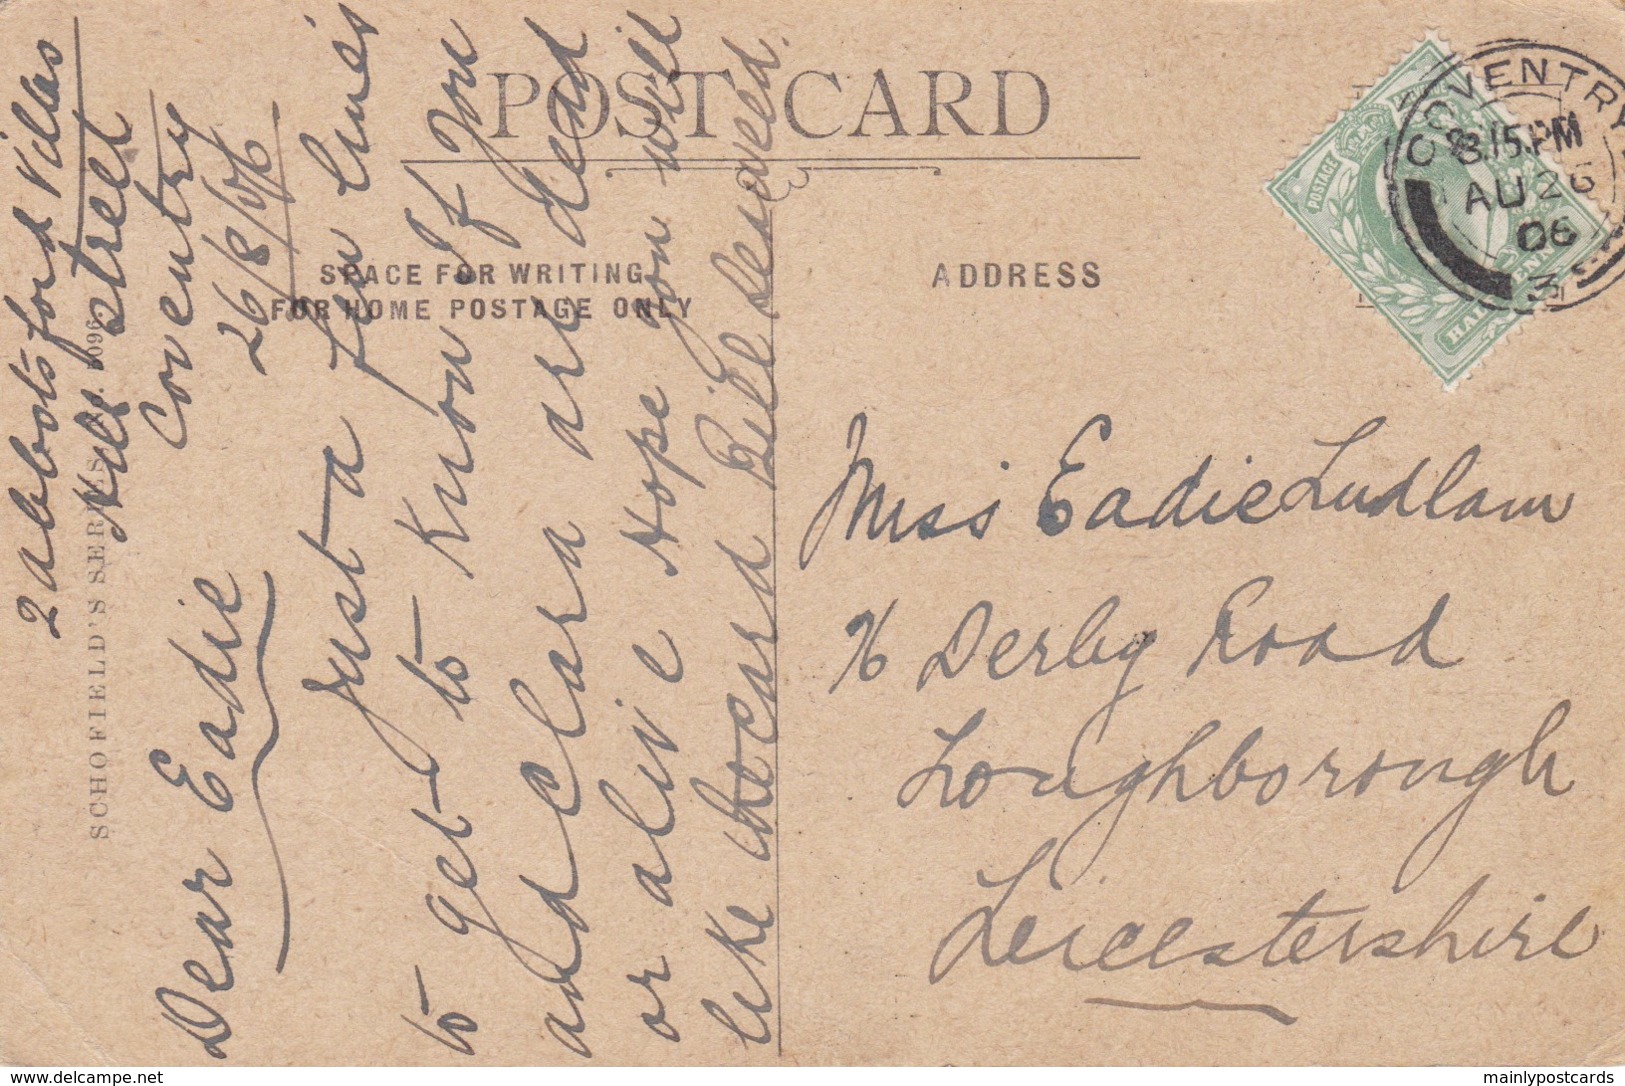 POST CARD
SPACE FOR WRITING
FOR HOME POSTAGE ONLY
ADDRESS
COVENTRY
8.15.PM
AU 26
06
3
POSTAGE
HALF PENNY
SCHOFIELD'S SERIES. No. 1096
2 abbotsford Villas
Hill street
Coventry
26/8/06
Dear Eadie
Just a few lines
to get to know If you
and clara are dead
or alive Hope you will
like card Bill Deserved
Miss Eadie Ludlam
76 Derby Road
Loughborough
Leicestershire
www.delcampe.net
mainlypostcards